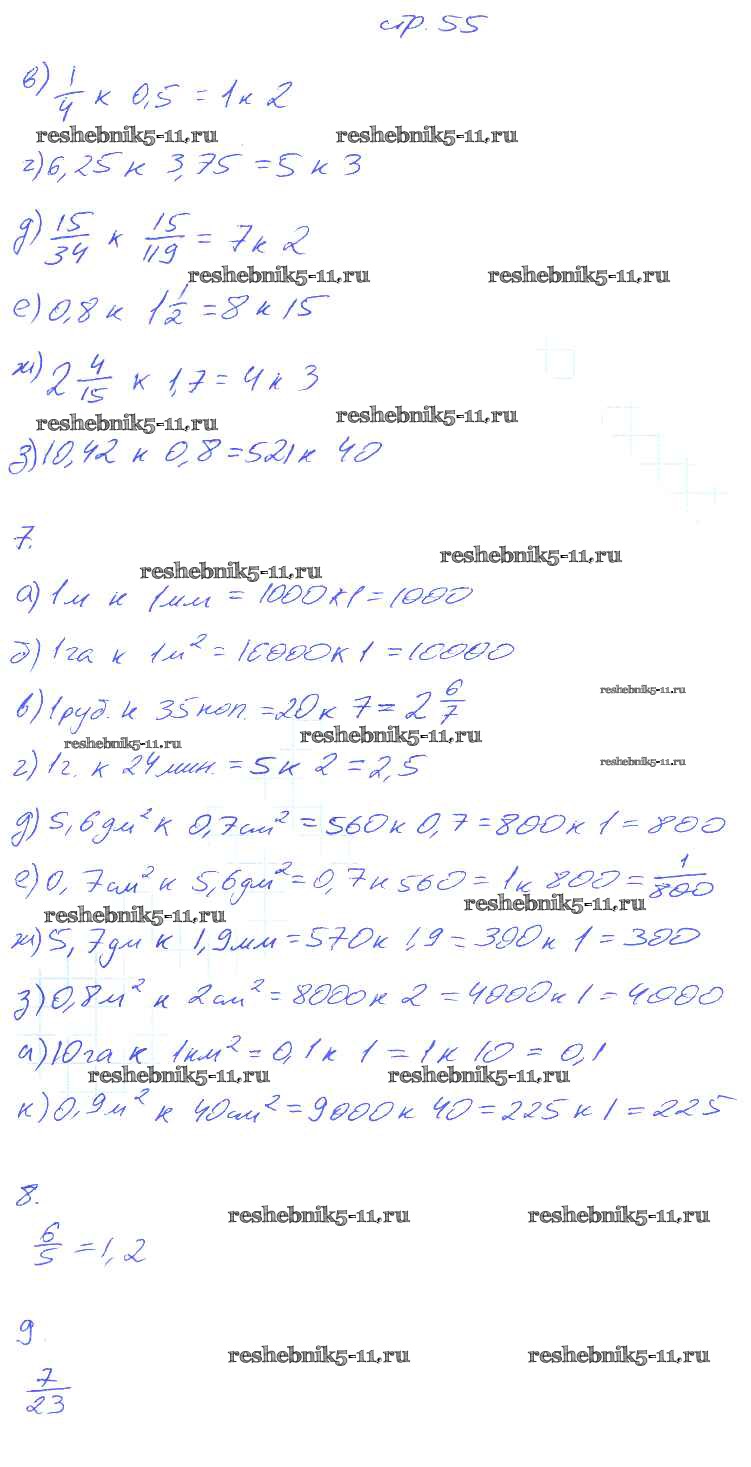 стр. 55
в) 1/4 к 0,5 = 1 к 2
reshebnik5-11.ru reshebnik5-11.ru
г) 6,25 к 3,75 = 5 к 3
д) 15/34 к 15/119 = 7 к 2
reshebnik5-11.ru reshebnik5-11.ru
е) 0,8 к 1 1/2 = 8 к 15
ж) 2 4/15 к 1,7 = 4 к 3
reshebnik5-11.ru reshebnik5-11.ru
з) 10,42 к 0,8 = 521 к 40
7.
reshebnik5-11.ru reshebnik5-11.ru
а) 1 м к 1 мм = 1000 к 1 = 1000
б) 1 га к 1 м² = 10000 к 1 = 10000
в) 1 руб. к 35 коп. = 20 к 7 = 2 6/7
reshebnik5-11.ru
reshebnik5-11.ru reshebnik5-11.ru
г) 1 г. к 24 мин. = 5 к 2 = 2,5
reshebnik5-11.ru
д) 5,6 дм² к 0,7 см² = 560 к 0,7 = 800 к 1 = 800
е) 0,7 см² к 5,6 дм² = 0,7 к 560 = 1 к 800 = 1/800
reshebnik5-11.ru reshebnik5-11.ru
ж) 5,7 дм к 1,9 мм = 570 к 1,9 = 300 к 1 = 300
з) 0,8 м² к 2 см² = 8000 к 2 = 4000 к 1 = 4000
и) 10 га к 1 км² = 0,1 к 1 = 1 к 10 = 0,1
reshebnik5-11.ru reshebnik5-11.ru
к) 0,9 м² к 40 см² = 9000 к 40 = 225 к 1 = 225
8.
reshebnik5-11.ru reshebnik5-11.ru
6/5 = 1,2
9.
reshebnik5-11.ru reshebnik5-11.ru
7/23